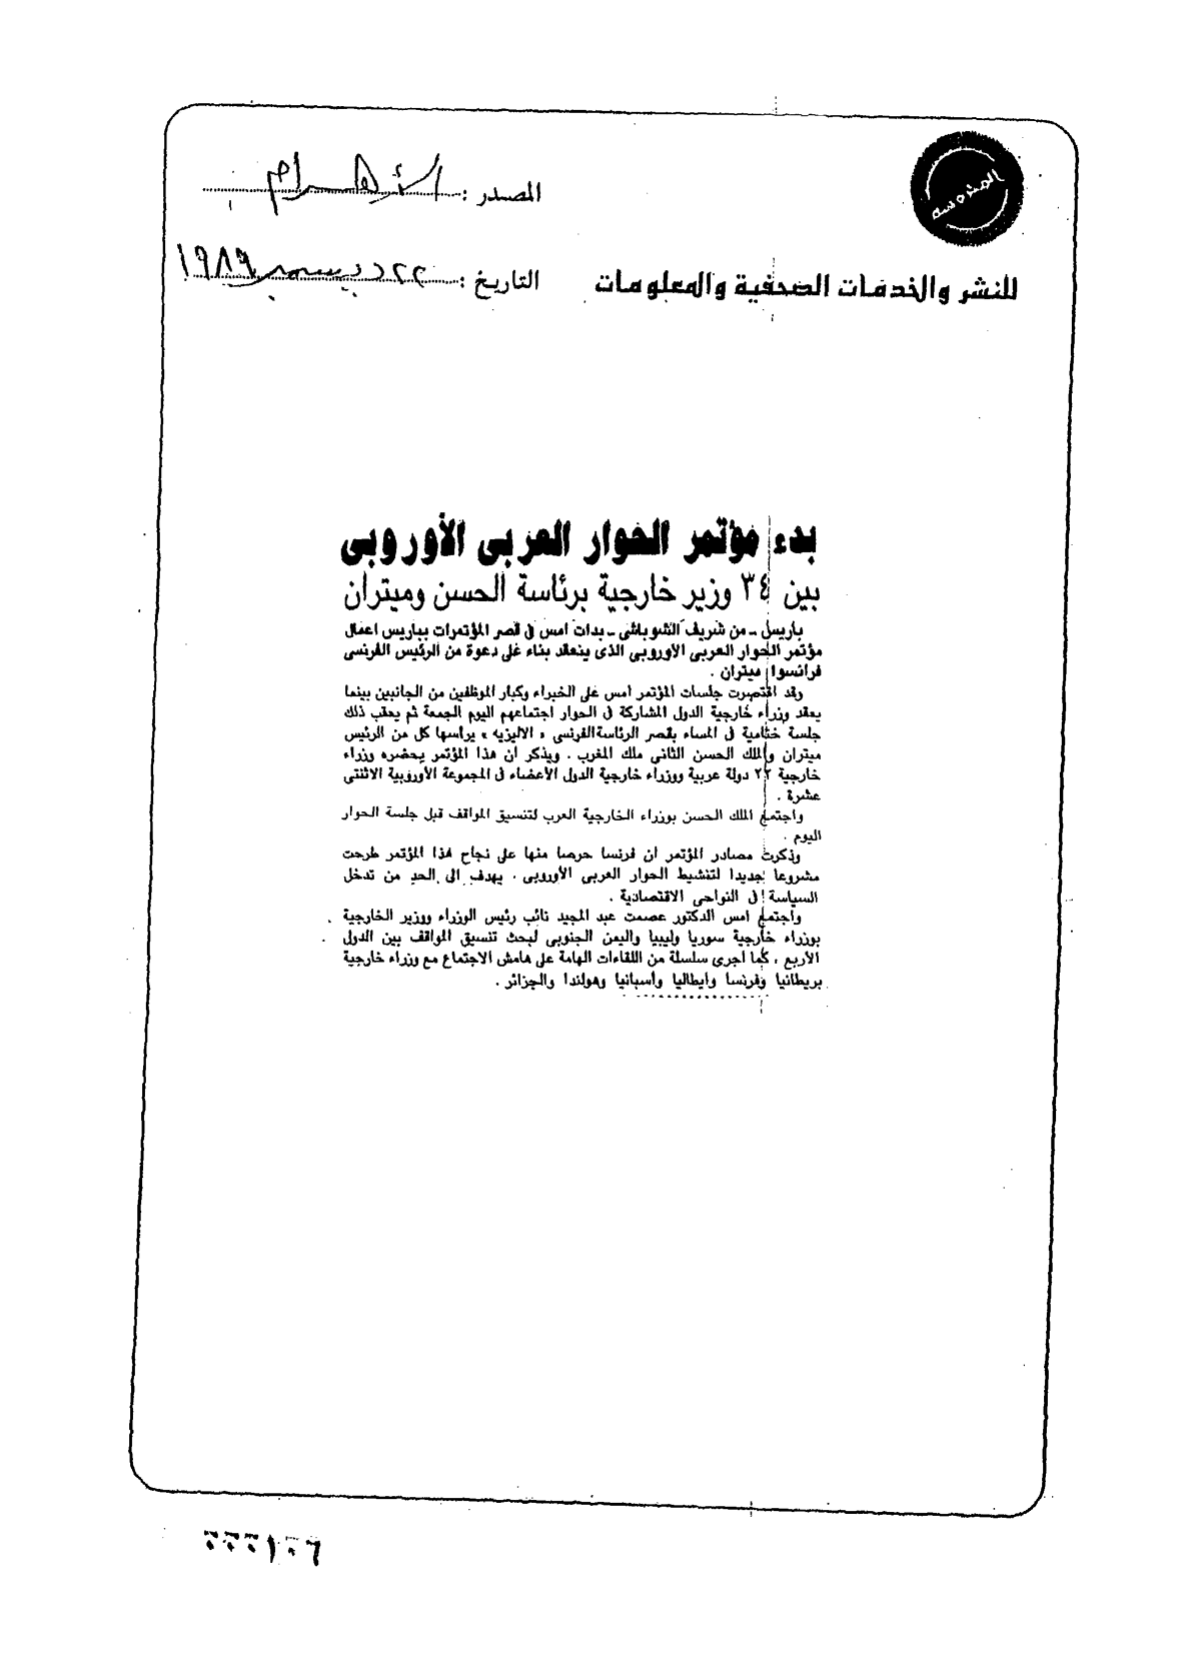 المصدر : الأهرام
المحروسة
للنشر والخدمات الصحفية والمعلومات
التاريخ : ٢٢ ديسمبر ١٩٨٩
بدء مؤتمر الحوار العربى الأوروبى
بين ٣٤ وزير خارجية برئاسة الحسن وميتران
باريس ـ من شريف الشوباشى ـ بدأت امس فى قصر المؤتمرات بباريس اعمال
مؤتمر الحوار العربى الأوروبى الذى ينعقد بناء على دعوة من الرئيس الفرنسى
فرانسوا ميتران .
وقد اقتصرت جلسات المؤتمر امس على الخبراء وكبار الموظفين من الجانبين بينما
يعقد وزراء خارجية الدول المشاركة فى الحوار اجتماعهم اليوم الجمعة ثم يعقب ذلك
جلسة ختامية فى المساء بقصر الرئاسة الفرنسى « الاليزيه » يرأسها كل من الرئيس
ميتران والملك الحسن الثانى ملك المغرب . ويذكر ان هذا المؤتمر يحضره وزراء
خارجية ٢٢ دولة عربية ووزراء خارجية الدول الأعضاء فى المجموعة الأوروبية الاثنتى
عشرة .
واجتمع الملك الحسن بوزراء الخارجية العرب لتنسيق المواقف قبل جلسة الحوار
اليوم .
وذكرت مصادر المؤتمر ان فرنسا حرصا منها على نجاح هذا المؤتمر طرحت
مشروعا جديدا لتنشيط الحوار العربى الأوروبى . يهدف الى الحد من تدخل
السياسة فى النواحى الاقتصادية .
واجتمع امس الدكتور عصمت عبد المجيد نائب رئيس الوزراء ووزير الخارجية
بوزراء خارجية سوريا وليبيا واليمن الجنوبى لبحث تنسيق المواقف بين الدول
الأربع ، كما اجرى سلسلة من اللقاءات الهامة على هامش الاجتماع مع وزراء خارجية
بريطانيا وفرنسا وايطاليا وأسبانيا وهولندا والجزائر .